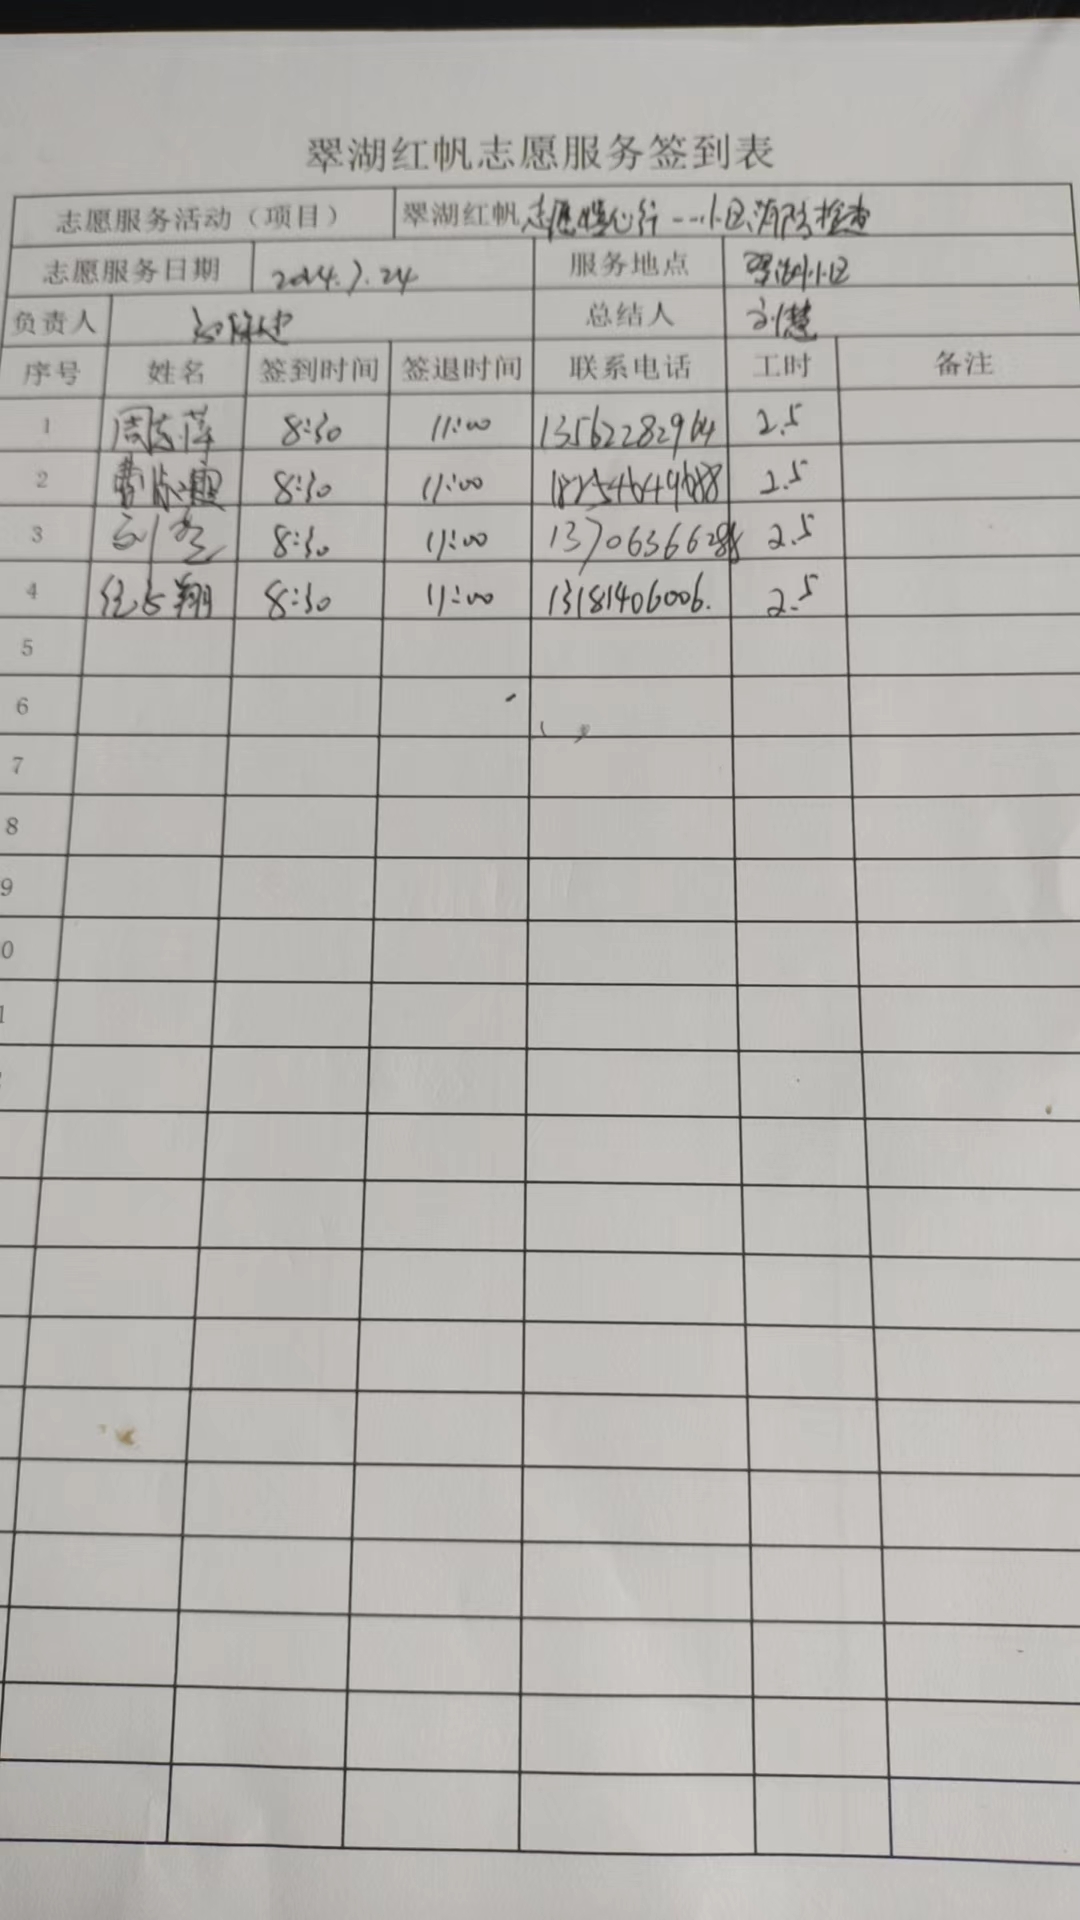 翠湖红帆志愿服务签到表
志愿服务活动（项目） 翠湖红帆志愿暖心行---小区消防检查
志愿服务日期 2024.7.24 服务地点 翠湖小区
负责人 总结人 刘慧
序号 姓名 签到时间 签退时间 联系电话 工时 备注
1 周志萍 8:30 11:00 13562282964 2.5
2 8:30 11:00 2.5
3 8:30 11:00 2.5
4 任云翔 8:30 11:00 13181406006. 2.5
5
6
7
8
9
0
1